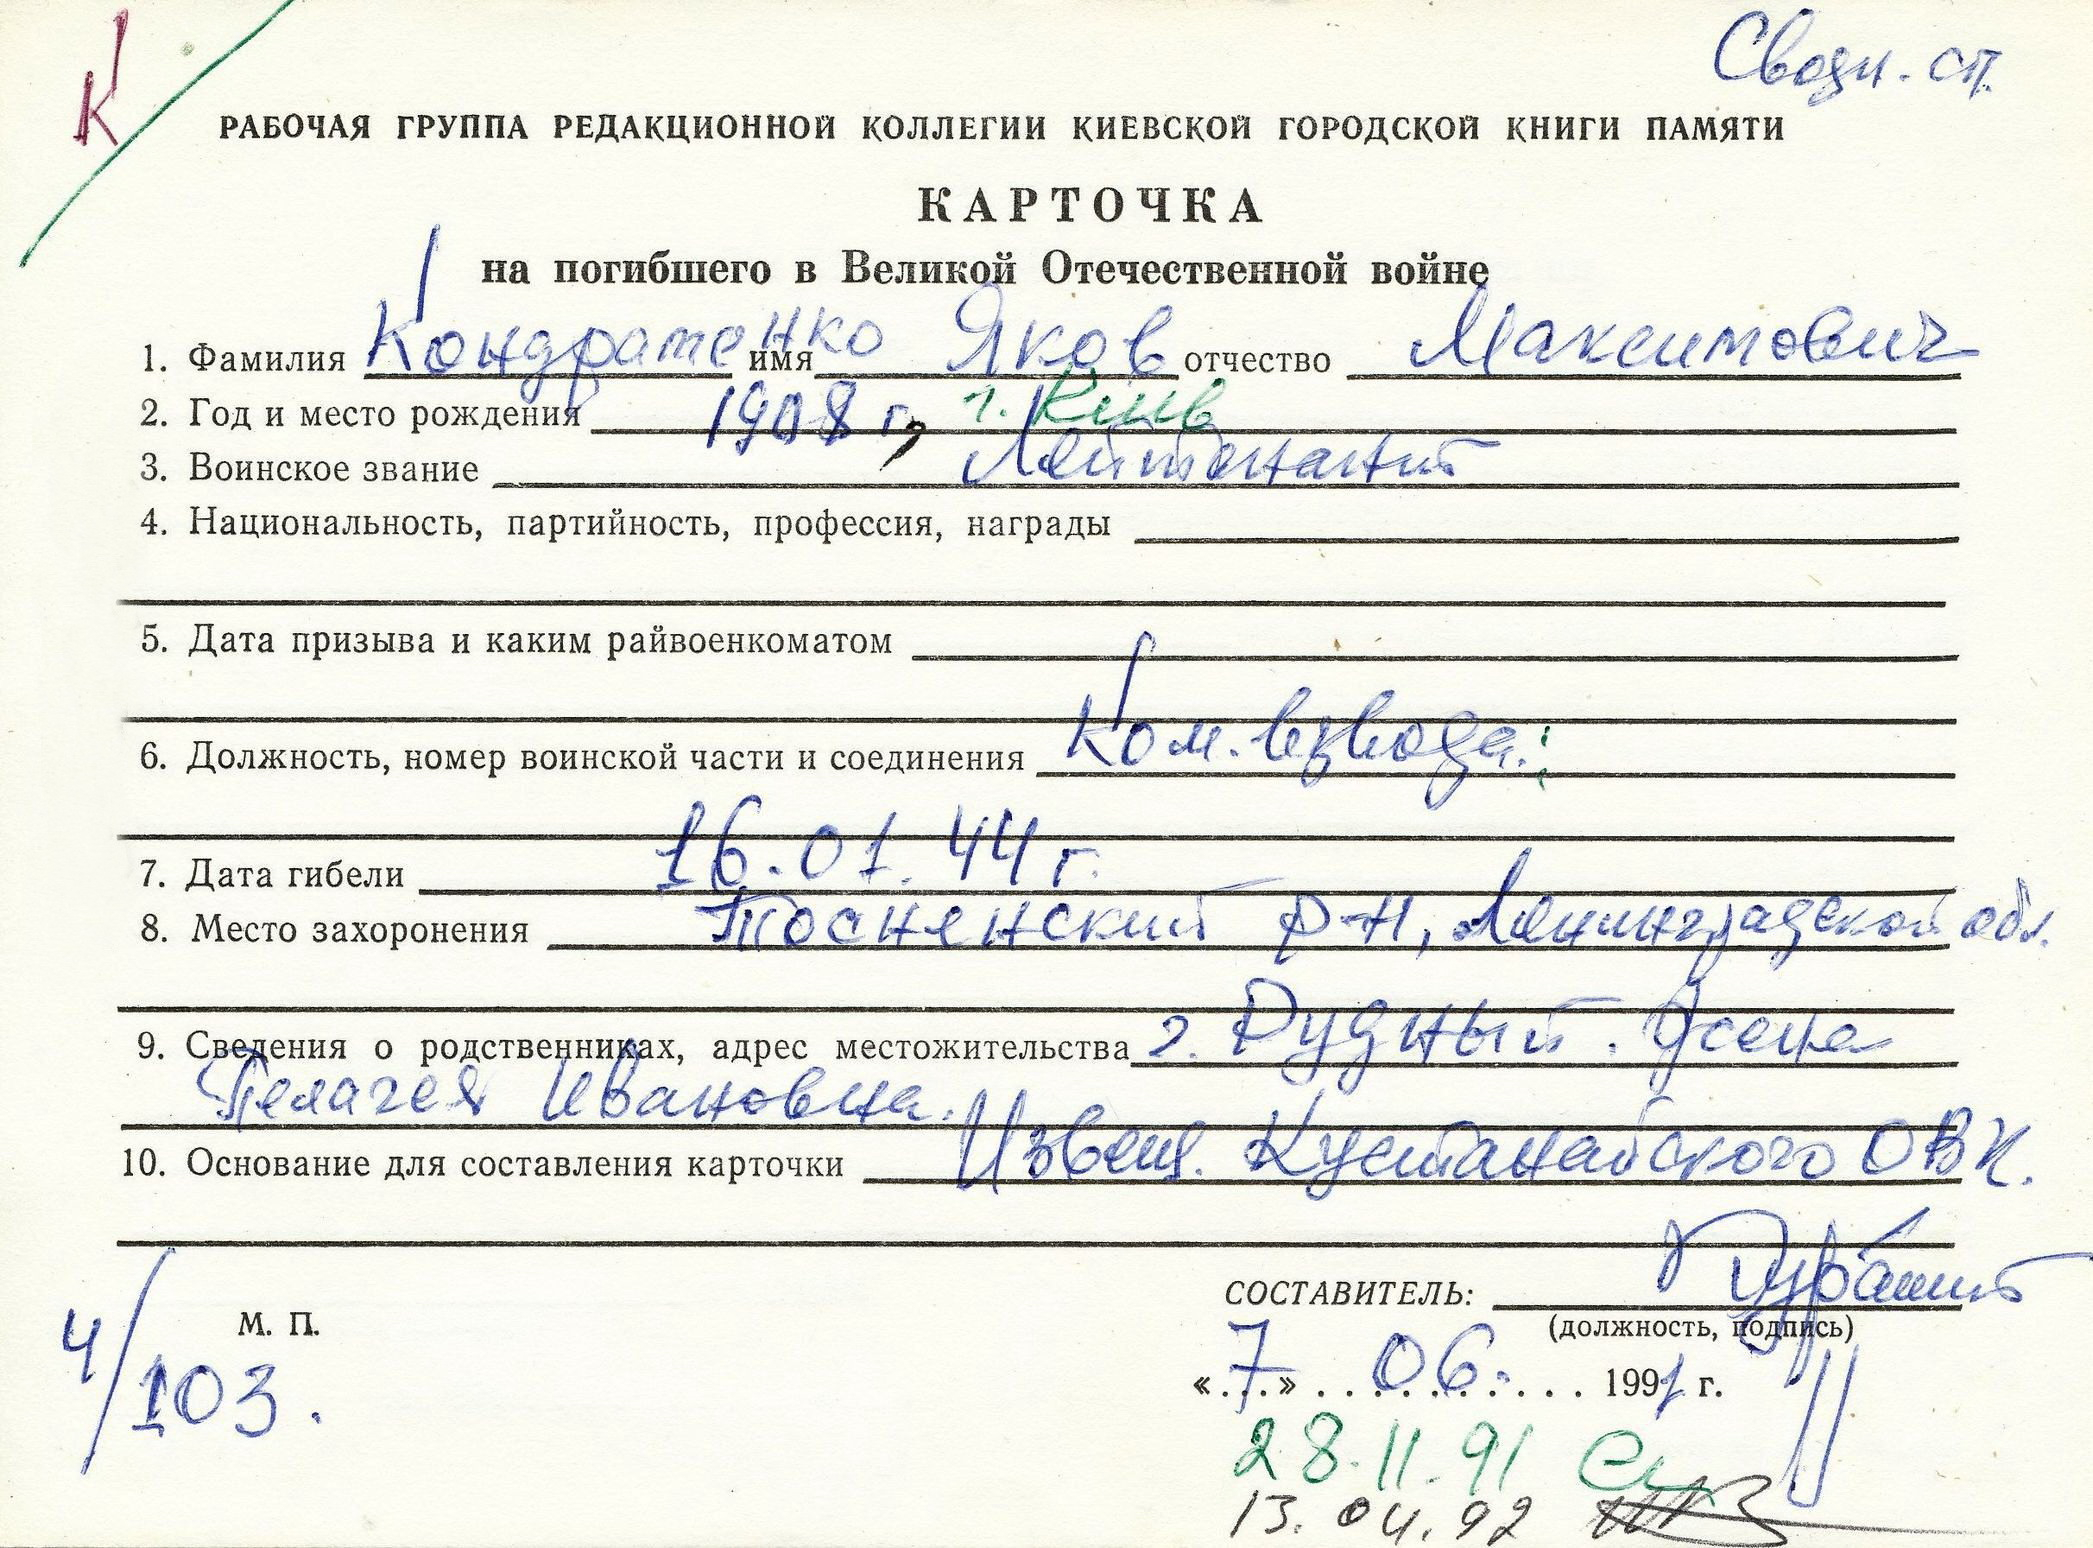 К
Сводн. сп.
РАБОЧАЯ ГРУППА РЕДАКЦИОННОЙ КОЛЛЕГИИ КИЕВСКОЙ ГОРОДСКОЙ КНИГИ ПАМЯТИ
КАРТОЧКА
на погибшего в Великой Отечественной войне
1. Фамилия Кондратенко имя Яков отчество Максимович
2. Год и место рождения 1908 г., г. Киïв
3. Воинское звание Лейтенант
4. Национальность, партийность, профессия, награды
5. Дата призыва и каким райвоенкоматом
6. Должность, номер воинской части и соединения Ком. взвода.
7. Дата гибели 16.01.44 г.
8. Место захоронения Тосненский р-н, Ленинградской обл.
9. Сведения о родственниках, адрес местожительства г. Рудный.
Пелагея Ивановна.
10. Основание для составления карточки Извещ. Кустанайского ОВК.
СОСТАВИТЕЛЬ:
(должность, подпись)
М. П.
4/103.
«7» 06. 1991 г.
28.11.91
13.04.92